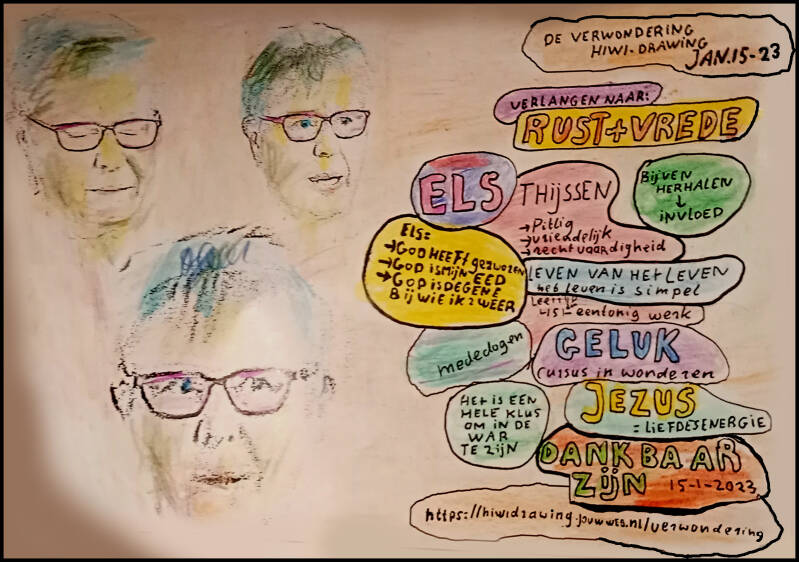 DE VERWONDERING
HIWI-DRAWING
JAN.15-23
VERLANGEN NAAR:
RUST+VREDE
ELS THIJSSEN
→ Pittig
→ vriendelijk
→ rechtvaardigheid
BLIJVEN
HERHALEN
↓
INVLOED
ELS=
→ GOD HEEFT gezworen
→ GOD IS MIJN EED
→ GOD IS DEGENE
BIJ WIE IK ZWEER
LEVEN VAN HET LEVEN
het leven is simpel
eentonig werk
mededogen
GELUK
Cursus in wonderen
HET IS EEN
HELE KLUS
OM IN DE
WAR
TE ZIJN
JEZUS
= LIEFDESENERGIE
DANKBAAR
ZIJN 15-1-2023
https://hiwidrawing.jouwweb.nl/verwondering